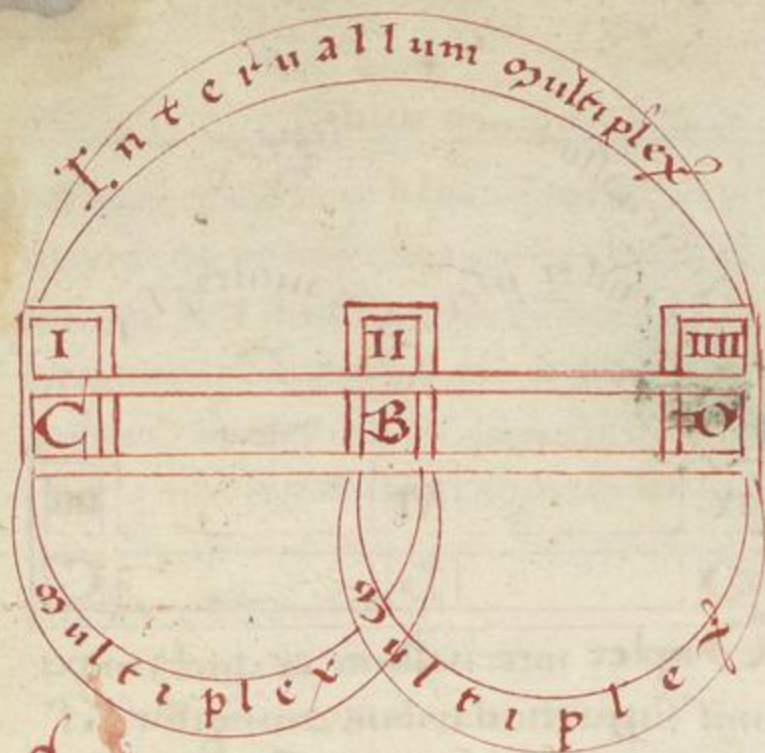 Interuallum multiplex
I II IIII
C B D
multiplex multiplex